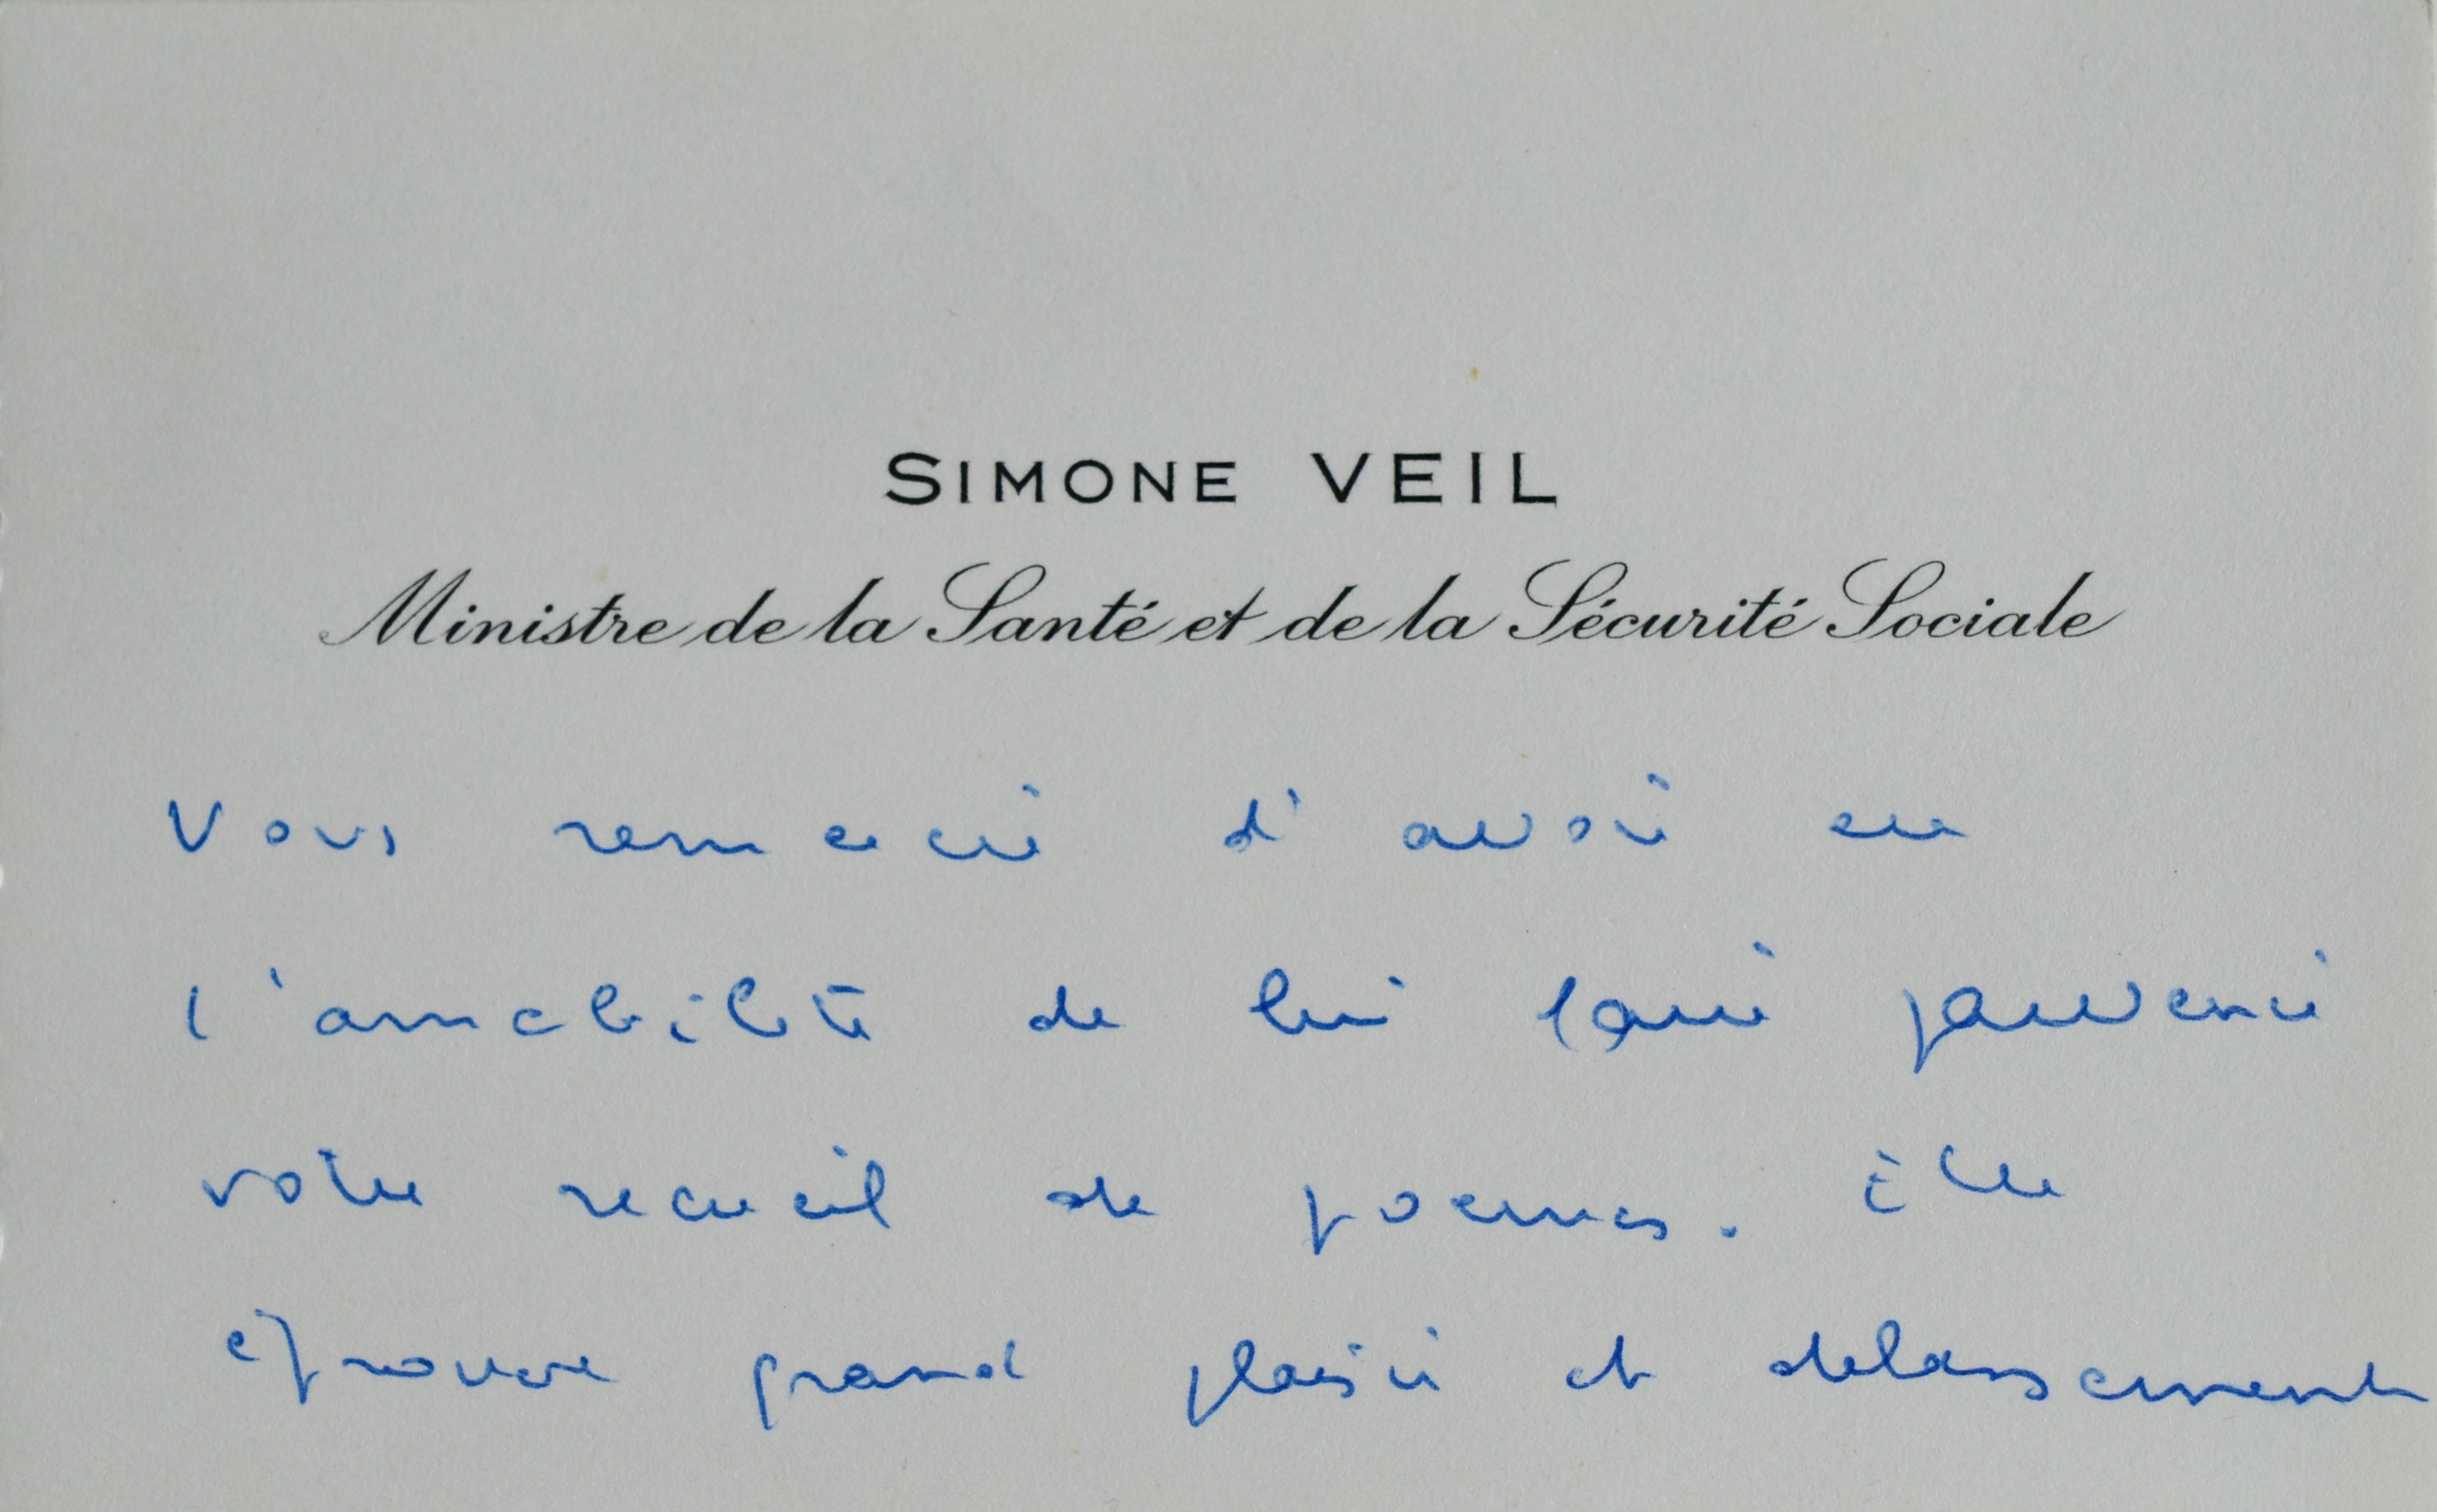 SIMONE VEIL
Ministre de la Santé et de la Sécurité Sociale
Vous remercie d'avoir eu
l'amabilité de lui faire parvenir
votre recueil de poemes. Elle
éprouve grand plaisir et delassement